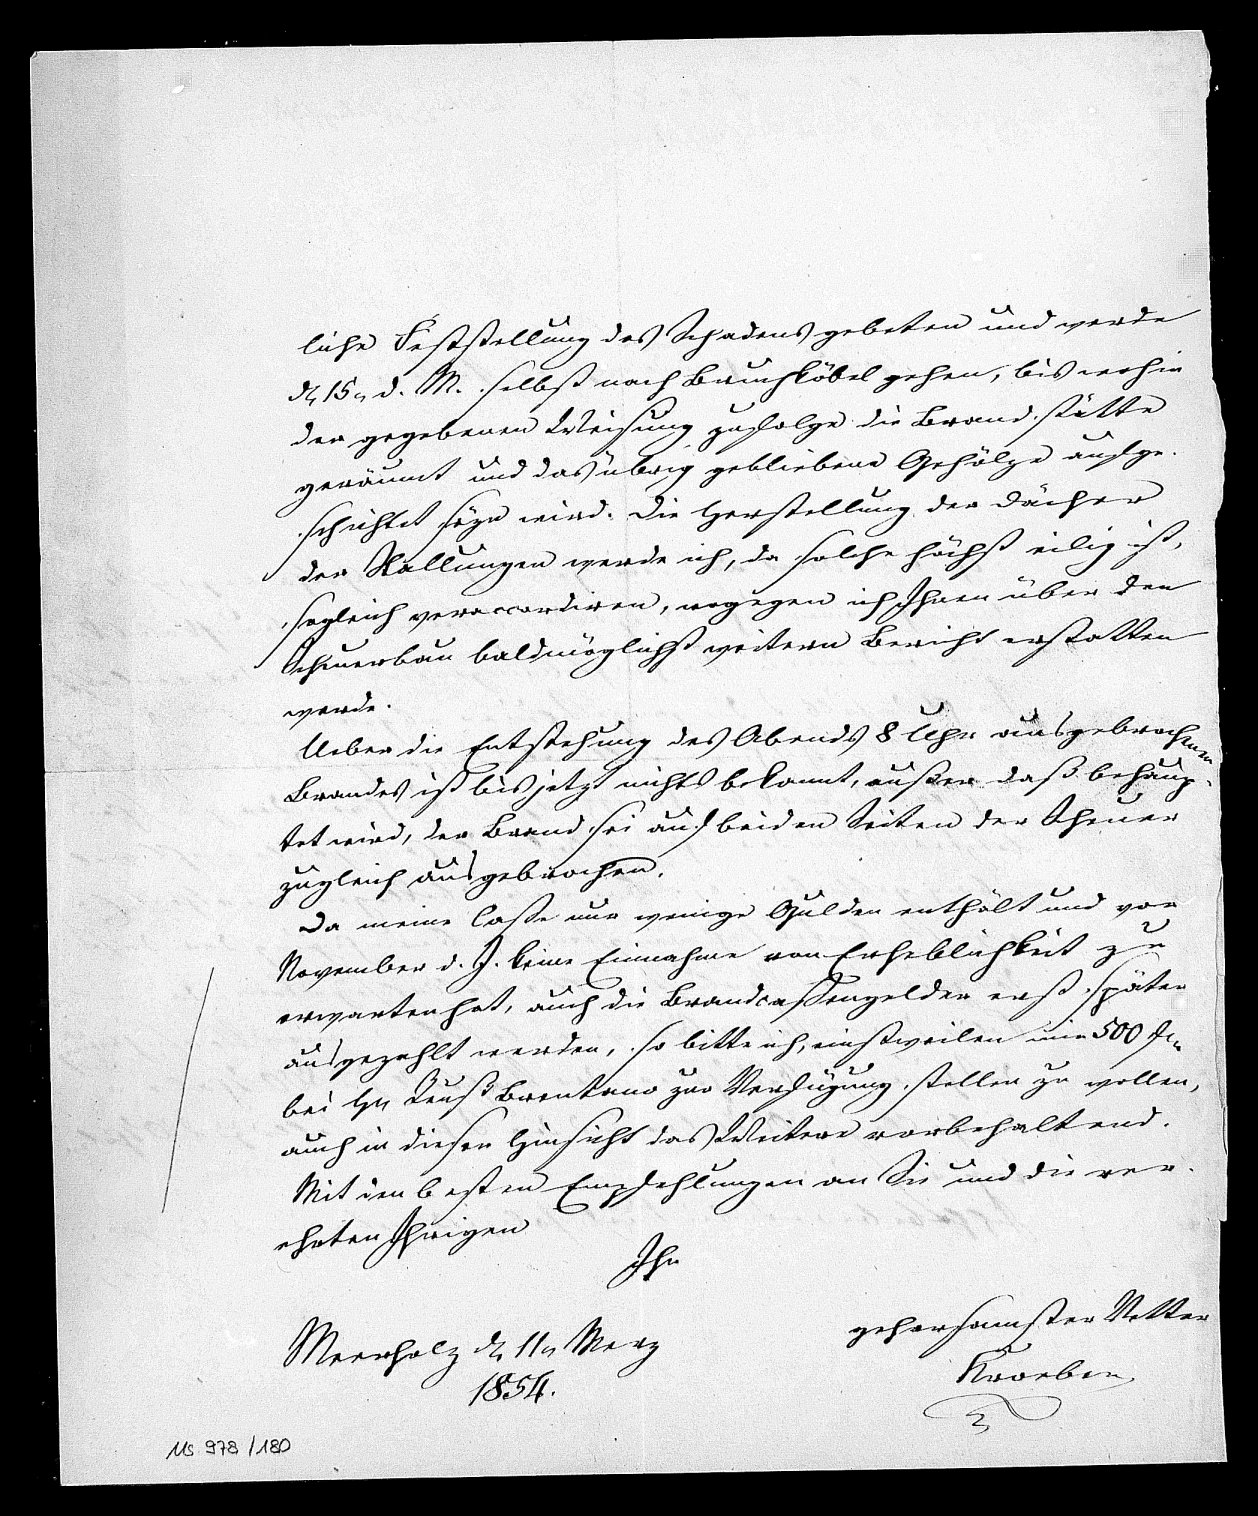 liche Feststellung des Schadens gebeten und werde
d. 15n d. M. selbst nach Bruchköbel gehen, bis wohin
der gegebenen Weisung zufolge die Brandstätte
geräumt und das übrig gebliebene Gehölze aufge-
schichtet seyn wird. Die Herstellung der Dächer
der Stallungen werde ich, da solche höchst eilig ist,
sogleich veraccordiren, wogegen ich Ihnen über den
Scheuerbau baldmöglichst weitern Bericht erstatten
werde.
Ueber die Entstehung des Abends 8 Uhr ausgebrochenen
Brandes ist bis jetzt nichts bekannt, außer daß behaup-
tet wird, der Brand sei auf beiden Seiten der Scheuer
zugleich ausgebrochen.
Da meine Casse nur wenige Gulden enthält und vor
November d. J. keine Einnahme von Erheblichkeit zu
erwarten hat, auch die Brandcassengelder erst später
ausgezahlt werden, so bitte ich, einstweilen mir 500 fl.
bei Hn Leuß Brentano zur Verfügung stellen zu wollen,
auch in dieser Hinsicht das Weitere vorbehaltend.
Mit den besten Empfehlungen an Sie und die ver-
ehrten Ihrigen
Ihr
gehorsamster Vetter
Kroeber
Meerholz d. 11n Merz
1854.
Ms 978/180